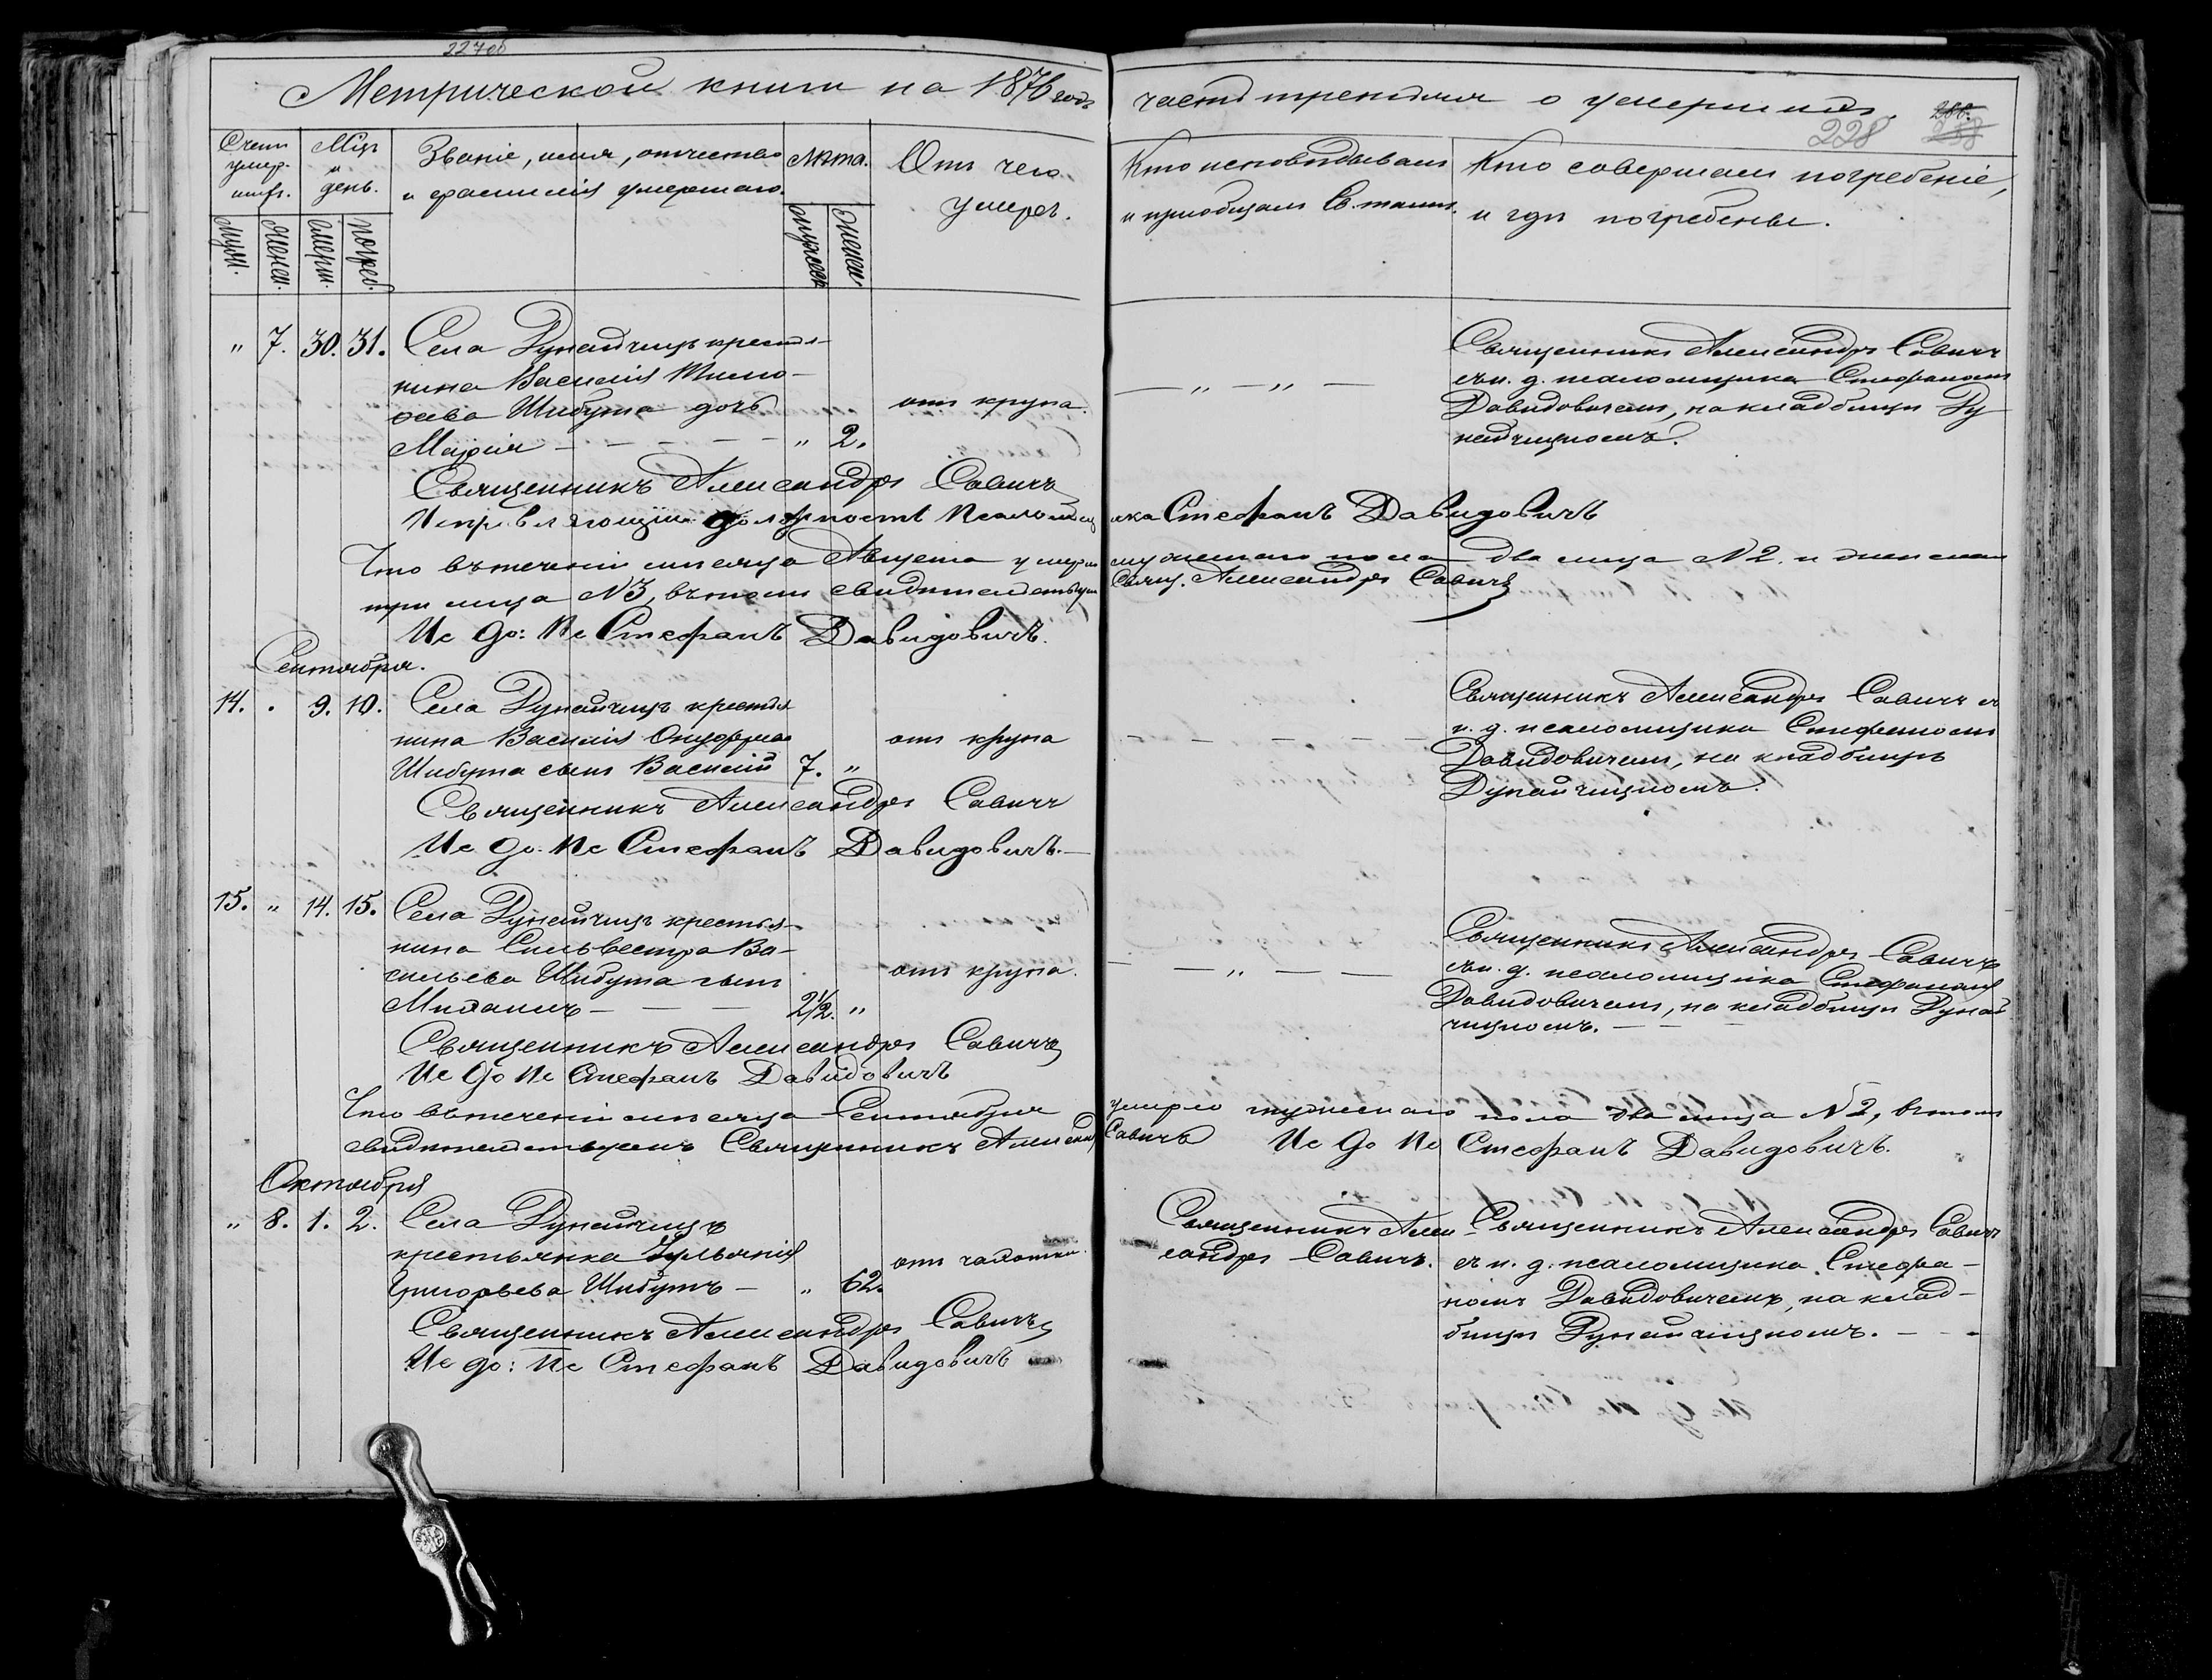 227об
Метрической книги на 1876 годъ
части третьей о умершихъ.
228
Счетъ умер-шихъ.
Мцъ и день.
Званіе, имя, отчество и фамилія умершаго.
Лѣта.
Отъ чего умеръ.
Кто исповѣдывалъ и пріобщалъ Св. таинъ.
Кто совершалъ погребеніе, и гдѣ погребены.
Муж.
Женск.
Смерт.
Погреб.
Мужеск
Женск
" 7. 30. 31. Села Дунайчицъ крестья-
нина Василія Тимо-
ѳеева Шибута дочь
Марія - - - - - " 2.
отъ крупа.
— " — " —
Священникъ Александръ Савичъ
съ и. д. псаломщика Стефаномъ
Давидовичемъ, на кладбищѣ Ду
найчицкомъ.
Священникъ Александръ Савичъ
Исправляющій должность Псаломщика Стефанъ Давидовичъ
Что въ теченіи мѣсяца Августа умерло мужескаго пола два лица №2. и женскаго
три лица №3, въ томъ свидѣтельствуемъ Свящ. Александръ Савичъ
Ис до: Пс Стефанъ Давидовичъ.
Сентября.
14. . 9. 10. Села Дунайчицъ крестья
нина Василія Онуфріева
Шибута сынъ Василій 7. "
отъ крупа
— — — — —
Священникъ Александръ Савичъ съ
и. д. псаломщика Стефаномъ
Давидовичемъ, на кладбищѣ
Дунайчицкомъ.
Священникъ Александръ Савичъ
Ис до. Пс Стефанъ Давидовичъ.—
15. " 14. 15. Села Дунайчицъ крестья-
нина Сильвестра Ва-
сильева Шибута сынъ
Михаилъ - - - 2½. "
отъ крупа.
— — " — —
Священникъ Александръ Савичъ
съ и. д. псаломщика Стефаномъ
Давидовичемъ, на кладбищѣ Дунай
чицкомъ. — — —
Священникъ Александръ Савичъ
Ис до Пс Стефанъ Давидовичъ
Что въ теченіи мѣсяца Сентября умерло мужескаго пола два лица №2, въ томъ
свидѣтельствуемъ Священникъ Александръ Савичъ Ис до Пс Стефанъ Давидовичъ.
Октября
" 8. 1. 2. Села Дунайчицъ
крестьянка Ульянія
Григорьева Шибутъ — " 62.
отъ чахотки.
Священникъ Алек-
сандръ Савичъ.
Священникъ Александръ Савичъ
съ и. д. псаломщика Стефа-
номъ Давидовичемъ, на клад-
бищѣ Дунайчицкомъ. — — -
Священникъ Александръ Савичъ
Ис до: Пс Стефанъ Давидовичъ